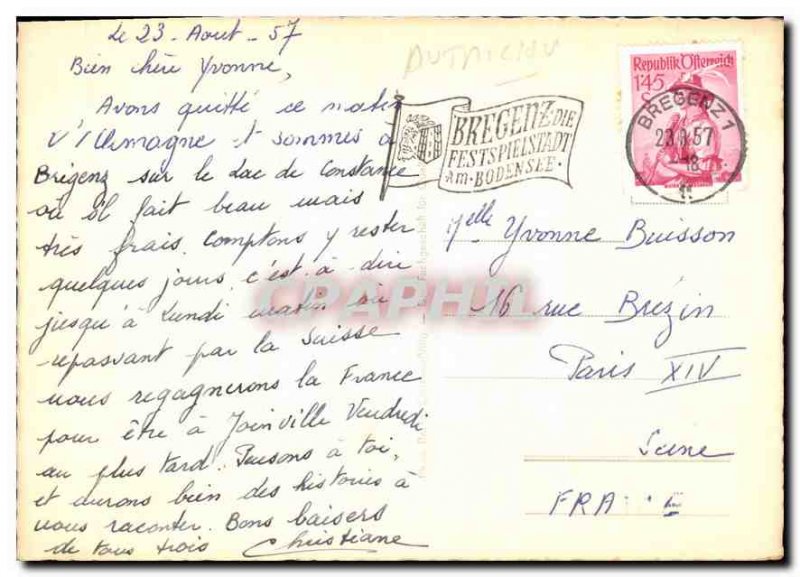 le 23 - Aout - 57
Bien chère Yvonne,
Avons quitté ce matin
l'Allemagne et sommes à
Brégenz sur le Lac de Constance
où s'il fait beau mais
très frais. Comptons y rester
quelques jours, c'est à dire
jusqu'à Lundi matin où
repassant par la Suisse
nous regagnerons la France
pour être à Joinville Vendredi
au plus tard. Pensons à toi,
et aurons bien des histoires à
nous raconter. Bons baisers
de tous trois Christiane
BREGENZ DIE
FESTSPIELSTADT
AM · BODENSEE ·
Republik Österreich
1·45
BREGENZ 1
-18
Melle Yvonne Buisson
16 rue Brézin
Paris XIV
Seine
FRANCE
CPAPHIL